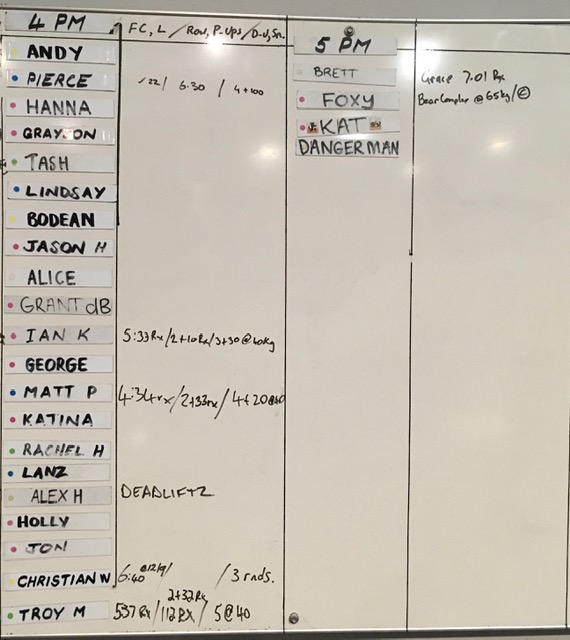 4 PM FC, L / Row, P-Ups / D-U, Sn.
ANDY
PIERCE /22/ 6:30 / 4+100
HANNA
GRAYSON
TASH
LINDSAY
BODEAN
JASON H
ALICE
GRANT dB
IAN K 5:33Rx/2+10Rx/3+30@40kg
GEORGE
MATT P 4:34rx/2+33rx/4+20@40
KATINA
RACHEL H
LANZ
ALEX H DEADLIFTZ
HOLLY
JON
CHRISTIAN W 6:40 @12/9/ /3 rnds.
2+32Rx
TROY M 537 Rx/112 RX/ 5@40
5 PM
BRETT Grace 7.01 Rx
FOXY Bear Complex @ 65kg/©
KAT
DANGERMAN